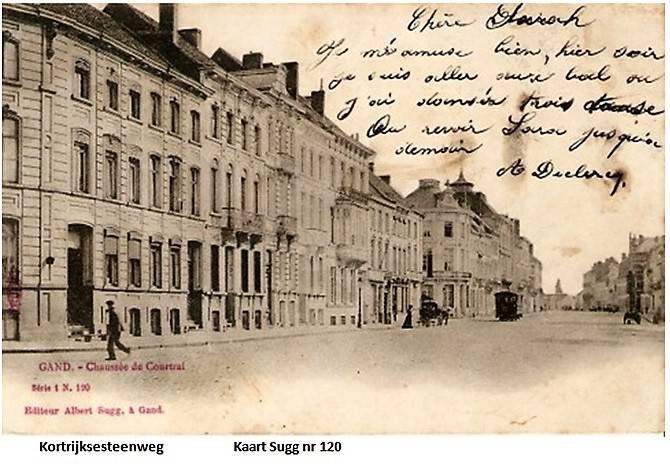 Chère Sarah
Je m'amuse bien, hier soir
je suis aller aux bal ou
j'ai dansés trois
Au revoir Sara jusqu'a
demain
A Declercq
GAND. - Chaussée de Courtrai
Série 1 N. 120
Editeur Albert Sugg, à Gand.
Kortrijksesteenweg Kaart Sugg nr 120